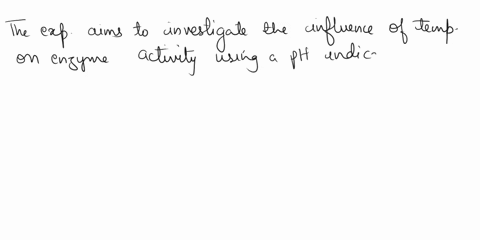 The exp. aims to investigate the influence of temp.
on enzyme activity using a pH indic-